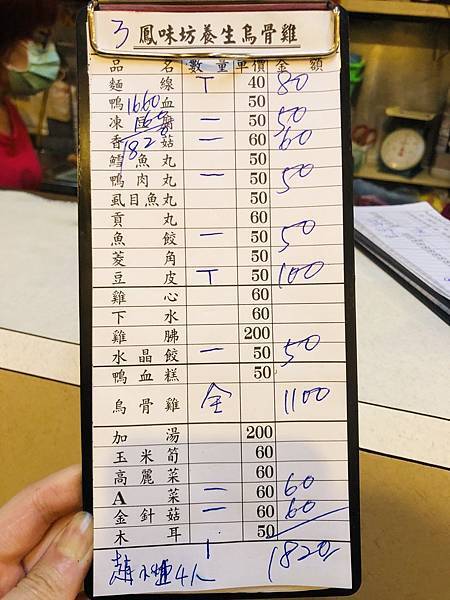 3 鳳味坊養生烏骨雞
品名 數量 單價 金額
麵線 T 40 80
鴨血 50
凍豆腐 一 50 50
香菇 一 60 60
鱈魚丸 50
鴨肉丸 一 50 50
虱目魚丸 50
貢丸 60
魚餃 一 50 50
菱角 50
豆皮 T 50 100
雞心 60
下水 60
雞胇 200
水晶餃 一 50 50
鴨血糕 50
烏骨雞 全 1100
加湯 200
玉米筍 60
高麗菜 60
A菜 一 60 60
金針菇 一 60 60
木耳 50
4人 1820
1660
160
1820